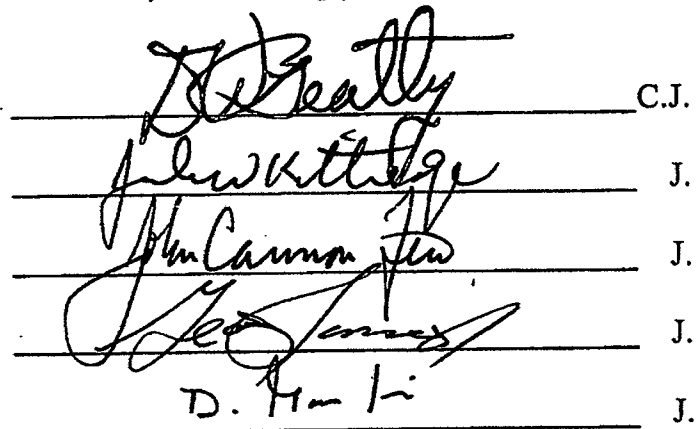 D W Beatty C.J.
John W Kittredge J.
John Cannon Few J.
Geo James J.
D. J.